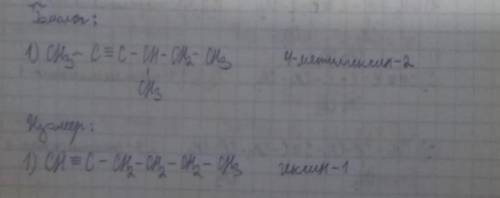 Гомологи:
1) CH₃ - C ≡ C - CH - CH₂ - CH₃ 4-метилгексин-2
CH₃
Изомер:
1) CH ≡ C - CH₂ - CH₂ - CH₂ - CH₃ гексин-1